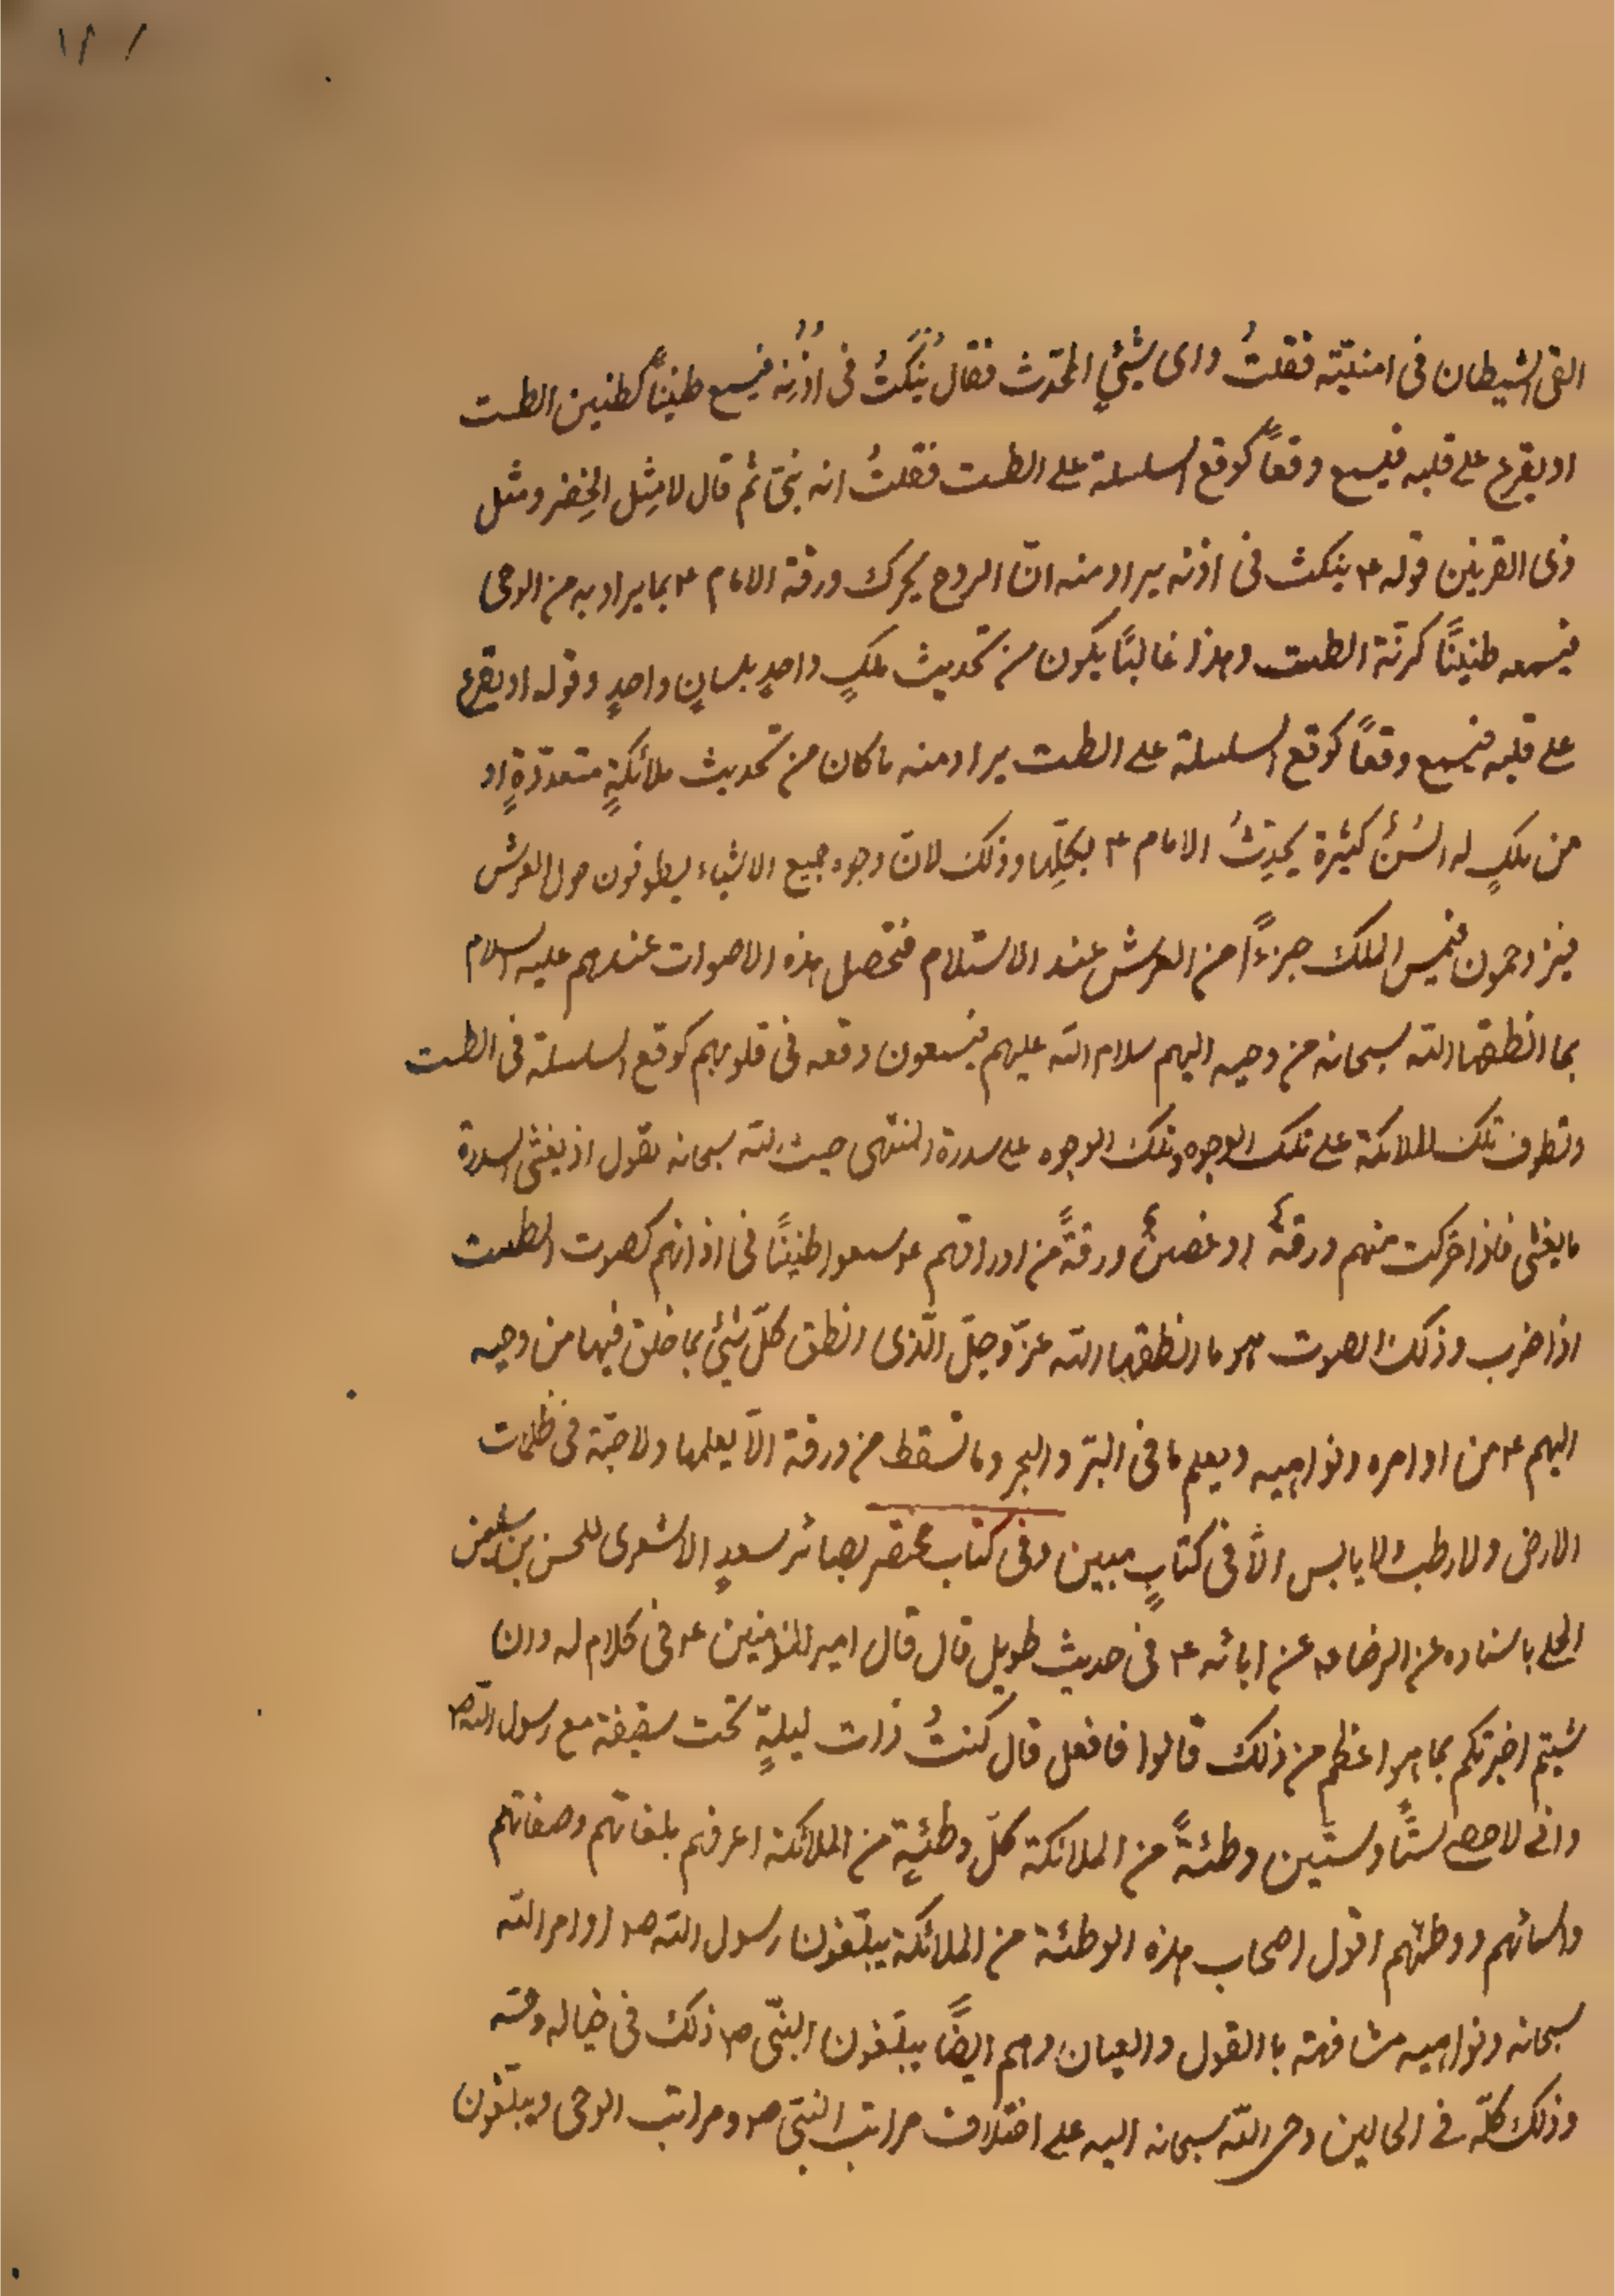 القى الشيطان فى امنيّته فقلتُ واى شيئٍ المحدّث فقال يُنكتُ فى اُذُنِه فيسمع طنيناً كطنين الطست
او يقرع على قلبه فيسمع وقعاً كوقع السلسلة على الطست فقلتُ انه نبىّ ثم قال لا مِثل الخِضر ومثل
ذى القرنين قوله ع ينكث فى اذنه يراد منه انّ الروح يحرك ورقة الامام ع بما يراد به من الوحى
فيسمعه طنينًا كرنّة الطست وهذا غالبًا يكون من تحديث ملكٍ واحدٍ بلسانٍ واحدٍ وقوله او يقرع
على قلبه فيسمع وقعاً كوقع السلسلة على الطست يراد منه ما كان من تحديث ملائكةٍ متعددةٍ او
من ملكٍ له السُنٌ كثيرة يحدِثُ الامام ع بكلِّها وذلك لانّ وجوه جميع الاشياء يطوفون حول العرش
فيزدحمون فيمس الملك جزءًا من العرش عند الاستلام فتحصل هذه الاصوات عندهم عليه السلام
بما انطقها الله سبحانه من وحيه اليهم سلام الله عليهم فيسمعون وقعه فى قلوبهم كوقع السلسلة فى الطست
وتطوف تلك الملائكة على تلك الوجوه وتلك الوجوه على سدرة المنتهى حيث الله سبحانه يقول اذ يغشى السدرة
ما يغشى فاذا تحركت منهم ورقةٌ او غصنٌ ورقةً من اوراقهم ع سمعوا طنينًا فى اذانهم كصوت الطست
اذا ضرب وذلك الصوت هو ما انطقها الله عزّ وجلّ الّذى انطق كلّ شيئٍ بما خلق فيها من وحيه
اليهم ع من اوامره ونواهيه ويعلم ما فى البّر والبحر وما تسقط من ورقة الاّ يعلمها ولا حبّة فى ظلمات
الارض ولا رطب ولا يابس الاّ فى كتابٍ مبين وفى كتاب مختصر بصائر سعدٍ الاشعرى للحسن بن سليمن
الحلى باسناده عن الرضا ع عن ابائه ع فى حديث طويل قال قال امير المؤمنين ع فى كلام له وان
شيتم اخبرتكم بما هو اعظم من ذلك قالوا فافعل قال كنتُ ذات ليلةٍ تحت سقيفة مع رسول الله ص
وانى لاحصى ستًّا وستّين وطئةً من الملائكة كلّ وطئةٍ من الملائكة اعرفهم بلغاتهم وصفاتهم
واسمائهم ووطئهم اقول اصحاب هذه الوطئة من الملائكة يبلّغون رسول الله ص اوامر الله
سبحانه ونواهيه مشافهة باالقول والعيان وهم ايضًا يبلّغون النبىّ ص ذلك فى خياله وحسّه
وذلك كلّه فى الحالين وحى الله سبحانه اليه على اختلاف مراتب النبىّ ص ومراتب الوحى ويبلّغون